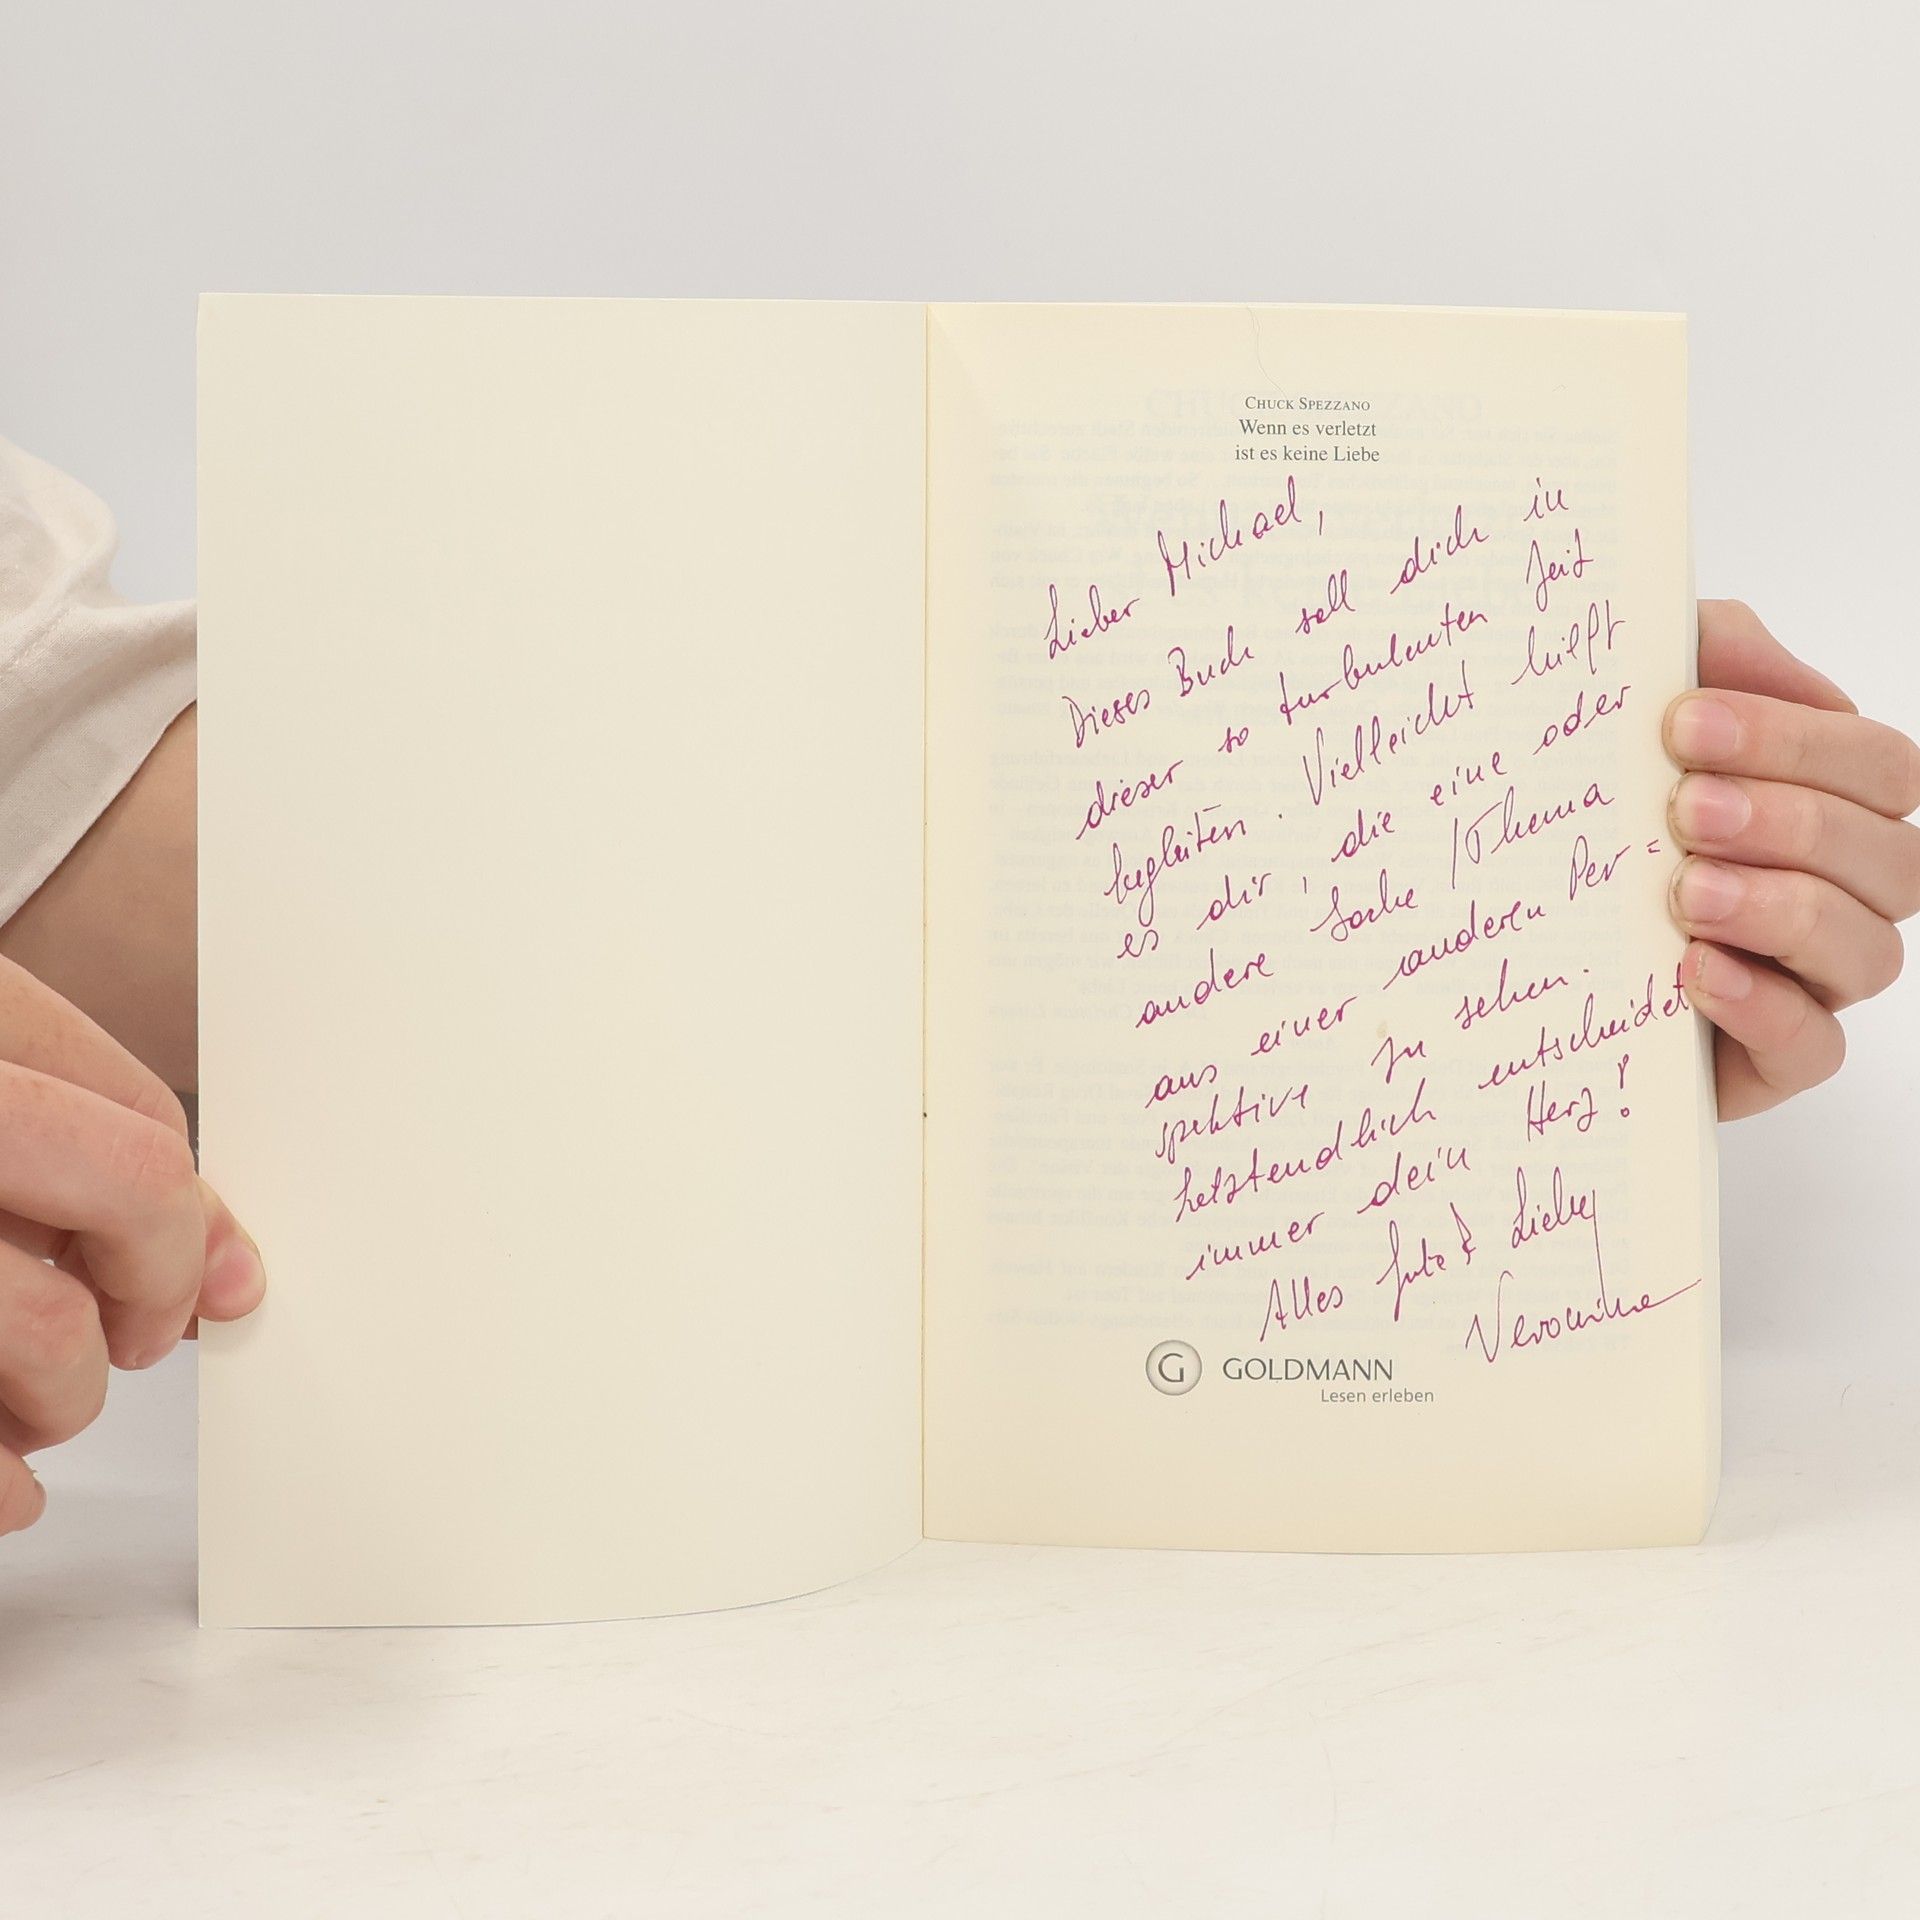 CHUCK SPEZZANO
Wenn es verletzt
ist es keine Liebe
Lieber Michael,
Dieses Buch soll dich in
dieser so turbulenten Zeit
begleiten. Vielleicht hilft
es dir, die eine oder
andere Sache / Thema
aus einer anderen Per=
spektive zu sehen.
Letztendlich entscheidet
immer dein Herz!
Alles Gute & Liebe
G GOLDMANN
Lesen erleben